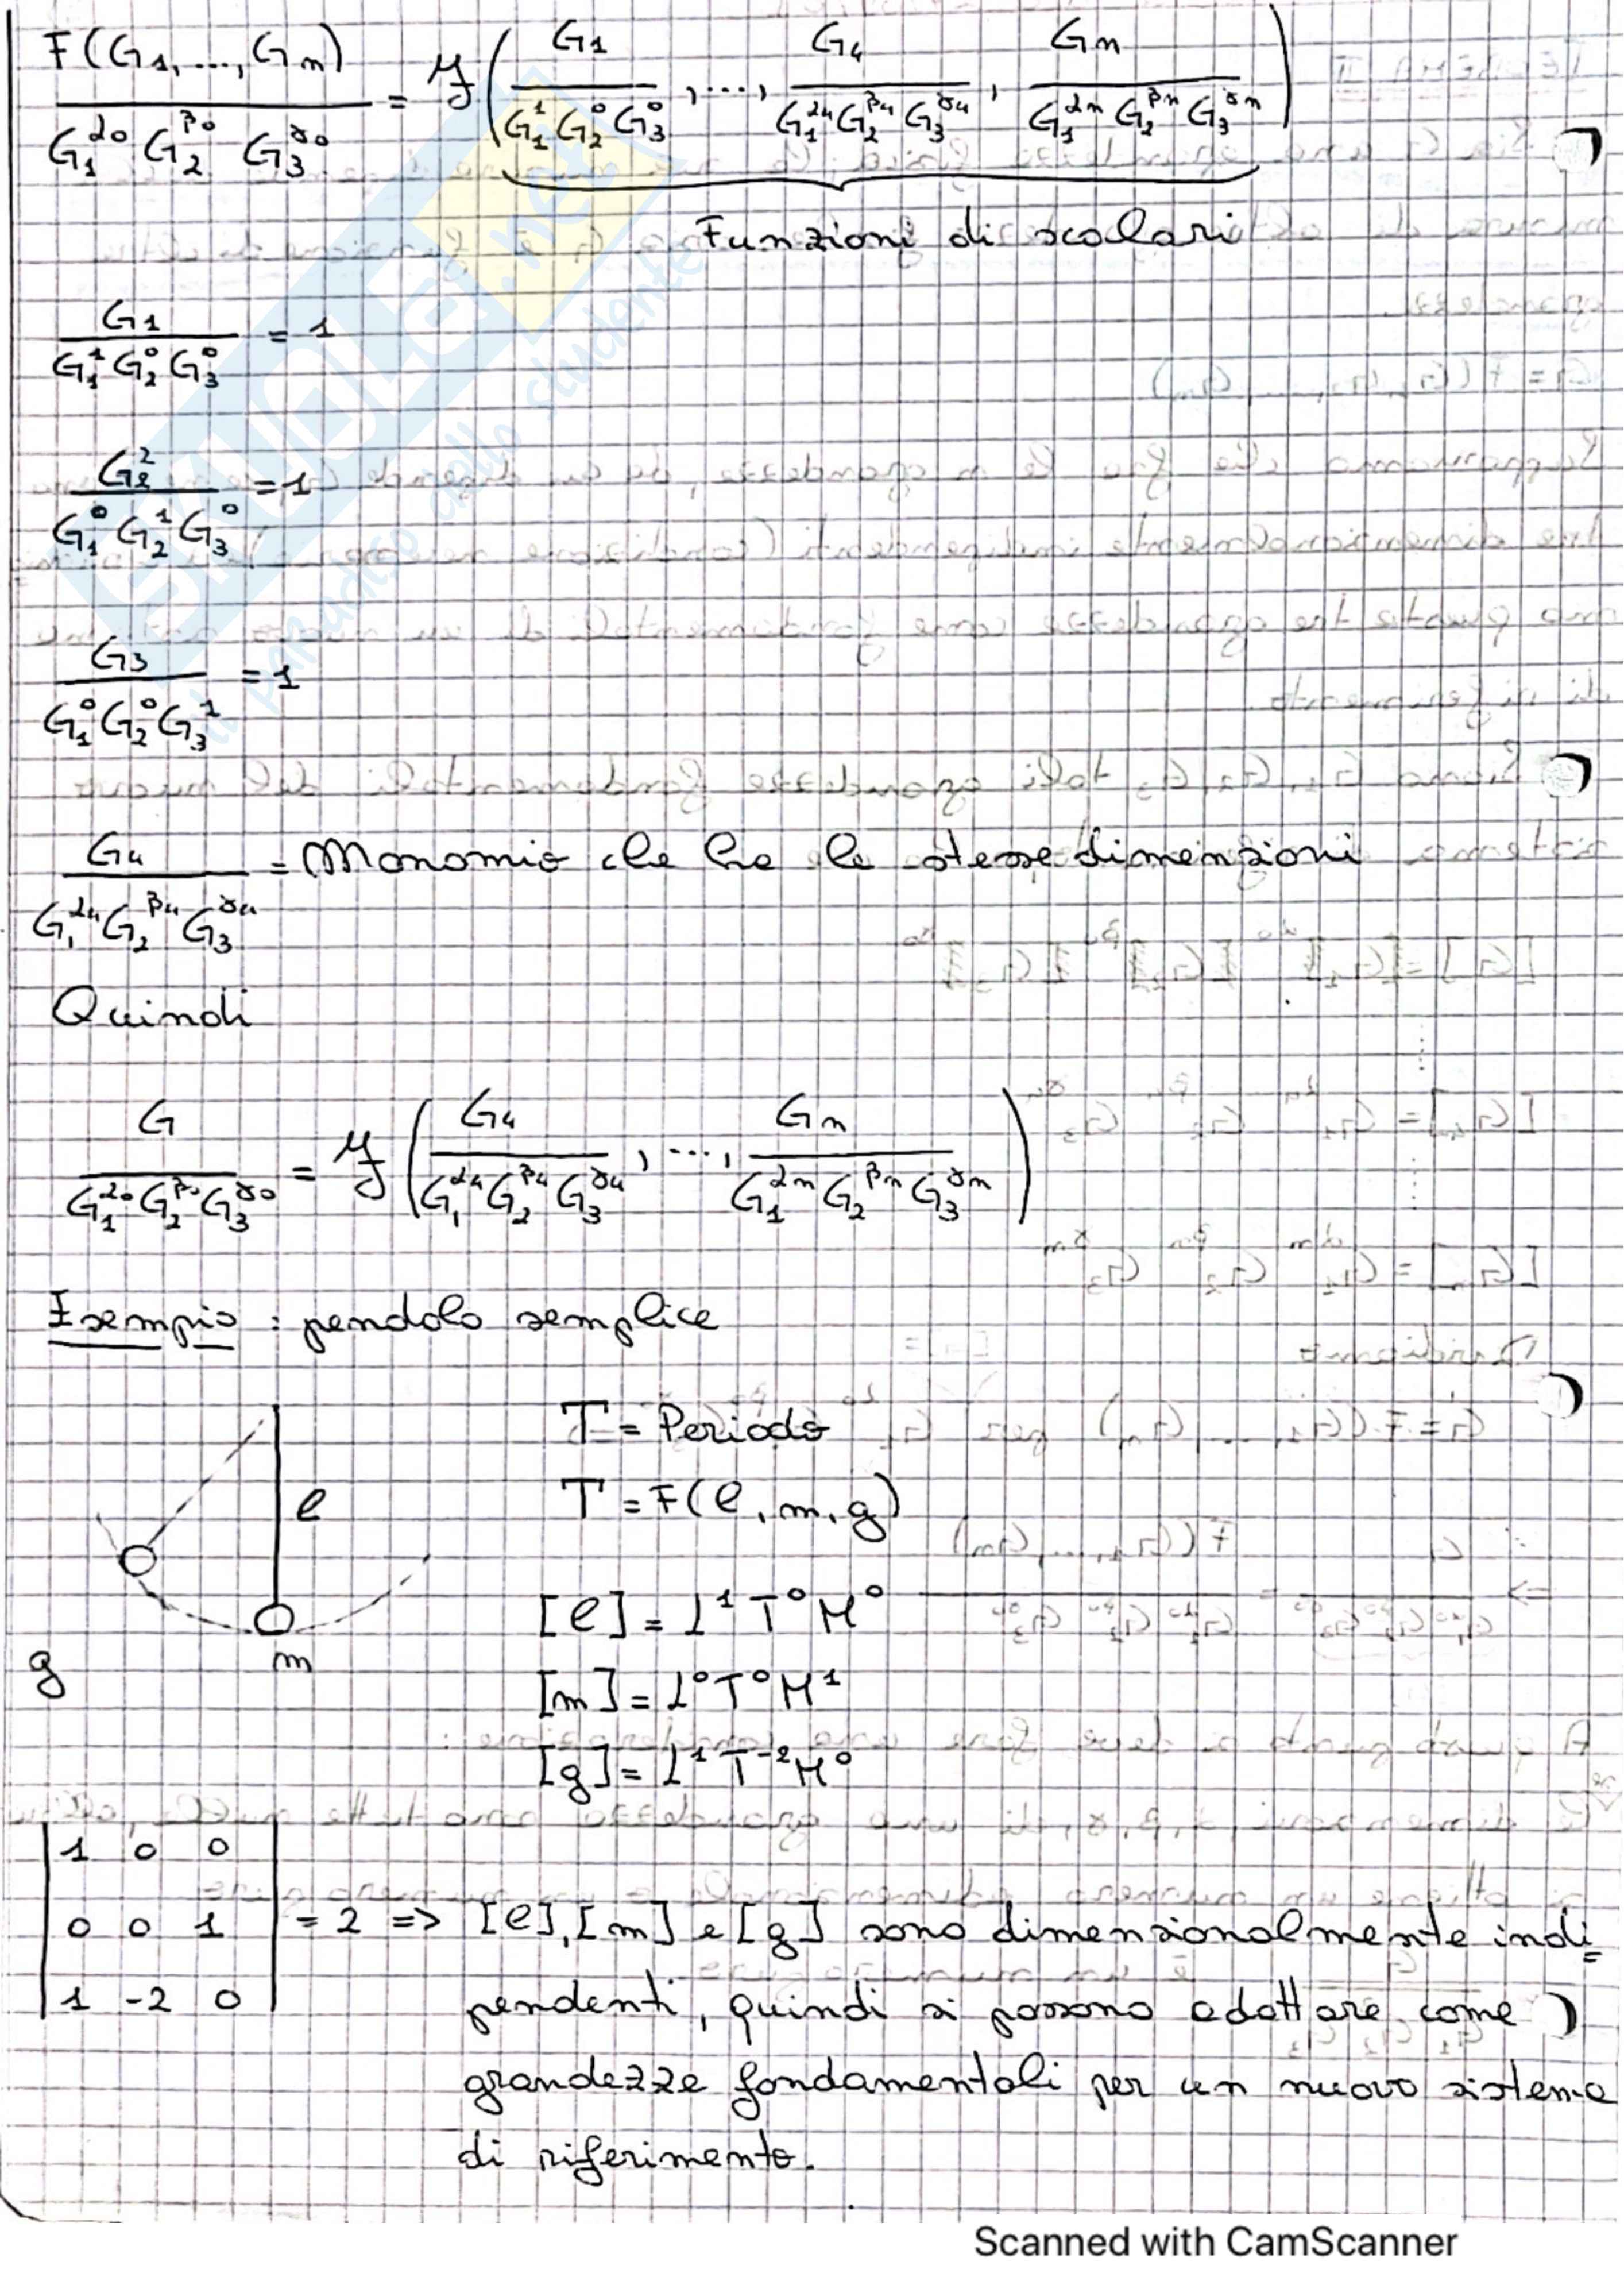 F(G₁, ..., Gₙ) / G₁^α₀ G₂^β₀ G₃^γ₀ = y ( G₁ / G₁¹ G₂⁰ G₃⁰ , ..., G₄ / G₁^α₄ G₂^β₄ G₃^γ₄ , Gₙ / G₁^αₙ G₂^βₙ G₃^γₙ )
Funzioni di scalari
G₁ / G₁¹ G₂⁰ G₃⁰ = 1
G₂² / G₁⁰ G₂¹ G₃⁰ = 1
G₃ / G₁⁰ G₂⁰ G₃¹ = 1
G₄ / G₁^α₄ G₂^β₄ G₃^γ₄ = Monomio che ha le stesse dimensioni
Quindi
G / G₁^α₀ G₂^β₀ G₃^γ₀ = y ( G₄ / G₁^α₄ G₂^β₄ G₃^γ₄ , ..., Gₙ / G₁^αₙ G₂^βₙ G₃^γₙ )
Esempio : pendolo semplice
T = Periodo
T = F(l, m, g)
l
[l] = L¹ T⁰ M⁰
g
m
[m] = L⁰ T⁰ M¹
[g] = L¹ T⁻² M⁰
1 0 0
0 0 1 = 2 => [l], [m] e [g] sono dimensionalmente indi=
1 -2 0 pendenti, quindi si possono adottare come
grandezze fondamentali per un nuovo sistema
di riferimento.
SKUOLA.net
il paradiso dello studente
Scanned with CamScanner